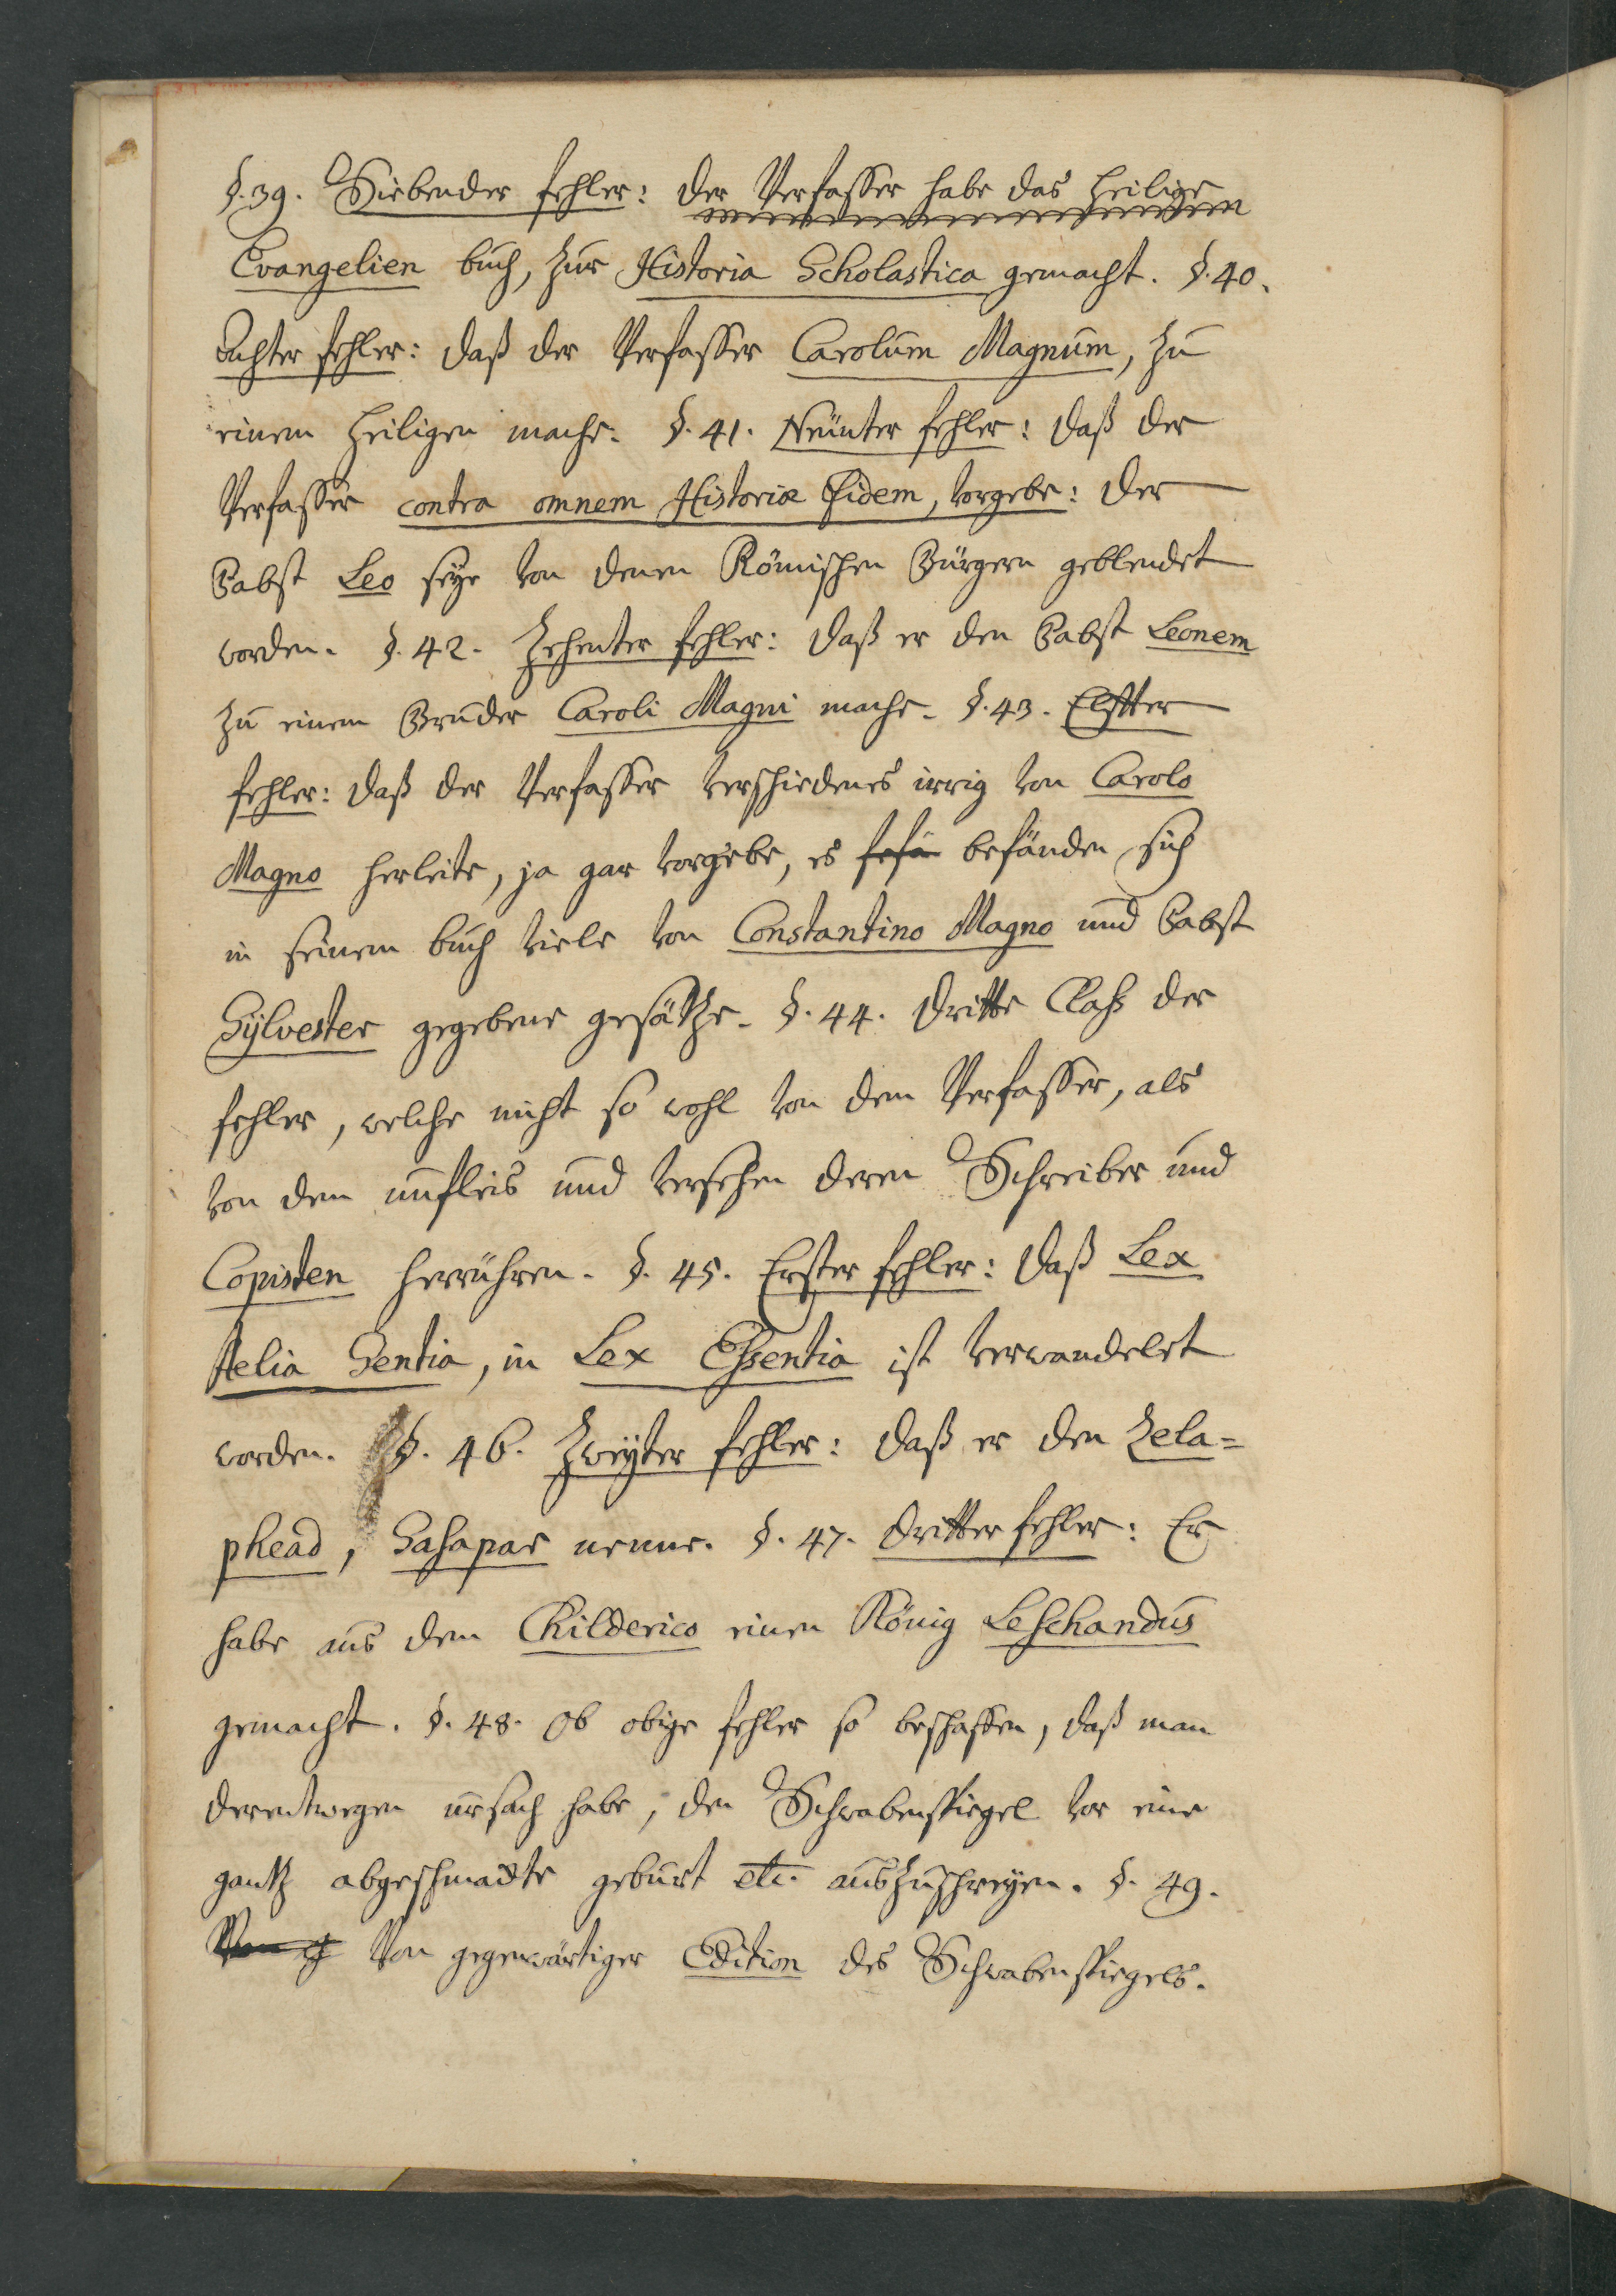 §. 39. Siebender fehler: der Verfasser habe das Heilige
Evangelien buch, zur Historia Scholastica gemacht. §. 40.
Achter fehler: daß der Verfasser Carolum Magnum, zu
einem Heiligen mache. §. 41. Neünter fehler: daß der
Verfasser contra omnem Historiæ Fidem, vorgebe: der
Pabst Leo seye von denen Römischen Bürgern geblendet
worden. §. 42. Zehenter fehler: daß er den Pabst Leonem
zu einem Bruder Caroli Magni mache. §. 43. Elfter
fehler: daß der Verfasser verschiedenes irrig von Carolo
Magno herleite, ja gar vorgebe, es befänden sich
in seinem buch viele von Constantino Magno und Pabst
Sylvester gegebene gesätze. §. 44. Dritte Class der
fehler, welche nicht so wohl von dem Verfasser, als
von dem unfleis und versehen deren Schreiber und
Copisten herrühren. §. 45. Erster fehler: daß Lex
Aelia Sentia, in Lex Essentia ist verwandelet
worden. §. 46. Zweyter fehler: daß er den Zela=
phead, Sasapar nenne. §. 47. Dritter fehler: Er
habe aus dem Childerico einen König Leschandus
gemacht. §. 48. Ob obige fehler so beschaffen, daß man
derentwegen ursach habe, den Schwabenspiegel vor eine
gantz abgeschmackte geburt etc. auszuschreyen. §. 49.
Von gegenwärtiger Edition des Schwabenspiegels.